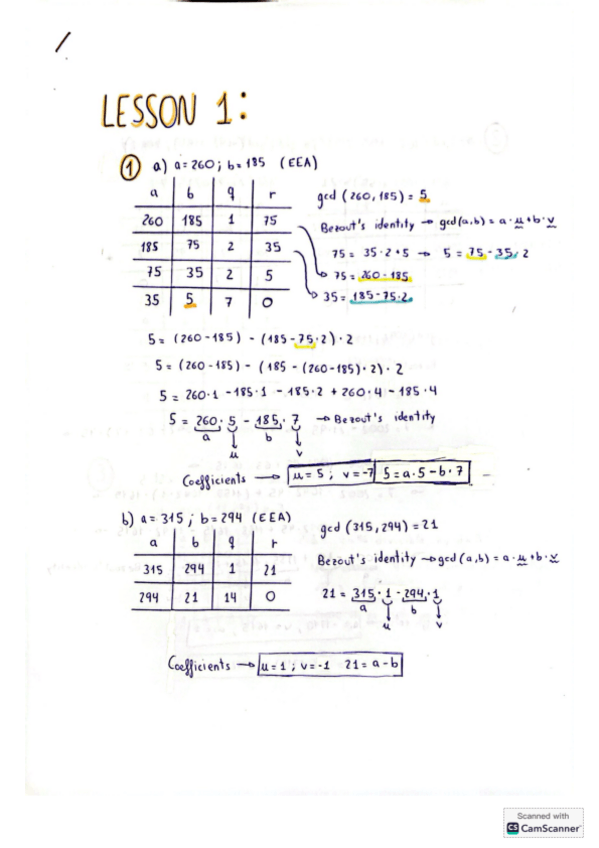 LESSON 1:
1 a) a=260 ; b=185 (EEA)
a b q r
260 185 1 75
185 75 2 35
75 35 2 5
35 5 7 0
gcd (260,185) = 5
Bezout's identity → gcd(a,b) = a·u+b·v
75 = 35·2+5 → 5 = 75-35·2
75 = 260-185
35 = 185-75·2
5 = (260-185) - (185-75·2)·2
5 = (260-185) - (185-(260-185)·2)·2
5 = 260·1 -185·1 -185·2 + 260·4 -185·4
5 = 260·5 - 185·7 → Bezout's identity
a u b v
Coefficients → u=5 ; v=-7 5=a·5-b·7
b) a=315 ; b=294 (EEA)
a b q r
315 294 1 21
294 21 14 0
gcd (315,294) = 21
Bezout's identity → gcd(a,b) = a·u+b·v
21 = 315·1 - 294·1
a u b v
Coefficients → u=1 ; v=-1 21=a-b
Scanned with
CS CamScanner